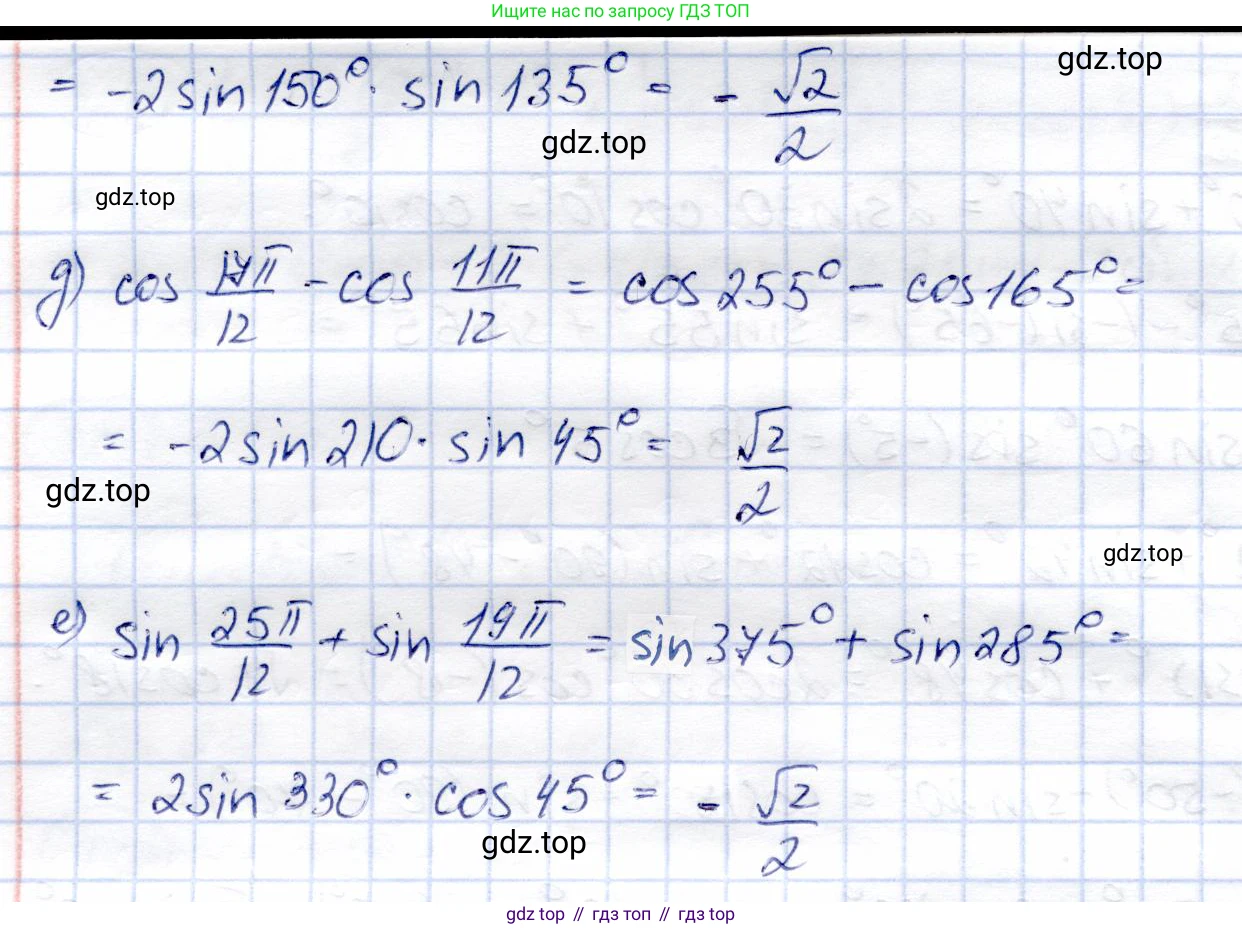 Ищите нас по запросу ГДЗ ТОП
= -2 sin 150° · sin 135° = - √2/2
gdz.top
gdz.top
gdz.top
g) cos 17π/12 - cos 11π/12 = cos 255° - cos 165° =
= -2 sin 210 · sin 45° = √2/2
gdz.top
gdz.top
e) sin 25π/12 + sin 19π/12 = sin 375° + sin 285° =
= 2 sin 330° · cos 45° = - √2/2
gdz.top
gdz top // гдз топ // гдз top